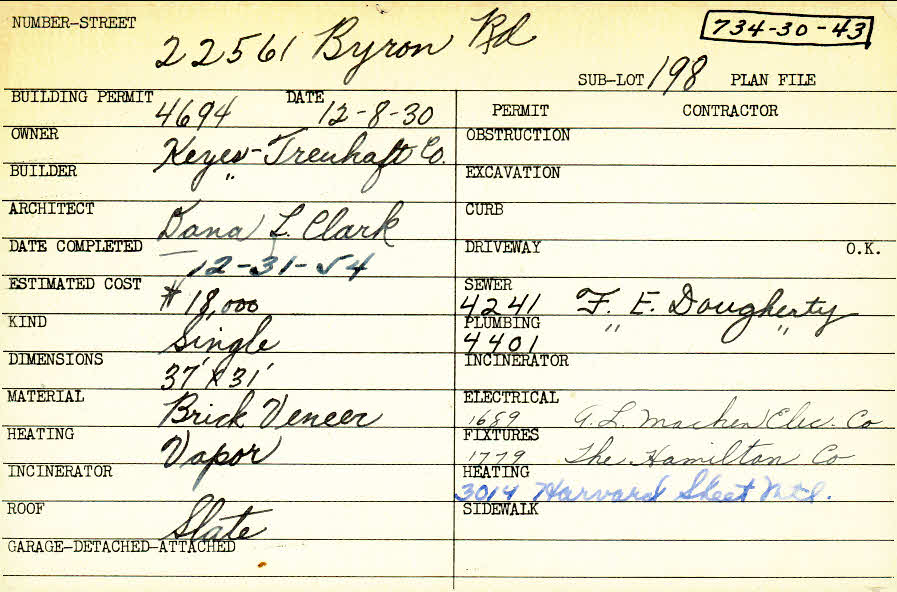 NUMBER-STREET 22561 Byron Rd 734-30-43
SUB-LOT 198 PLAN FILE
BUILDING PERMIT 4694 DATE 12-8-30
PERMIT CONTRACTOR
OWNER Keyes-Treuhaft Co.
OBSTRUCTION
BUILDER "
EXCAVATION
ARCHITECT Dana L. Clark
CURB
DATE COMPLETED 12-31-54
DRIVEWAY O.K.
ESTIMATED COST $18,000
SEWER 4241 F. E. Dougherty
KIND Single
PLUMBING 4401 " "
DIMENSIONS 37' x 31'
INCINERATOR
MATERIAL Brick Veneer
ELECTRICAL 1689 A. L. Machen Elec. Co
HEATING Vapor
FIXTURES 1779 The Hamilton Co
INCINERATOR
HEATING 3014 Harvard Sheet Mtl.
ROOF Slate
SIDEWALK
GARAGE-DETACHED-ATTACHED